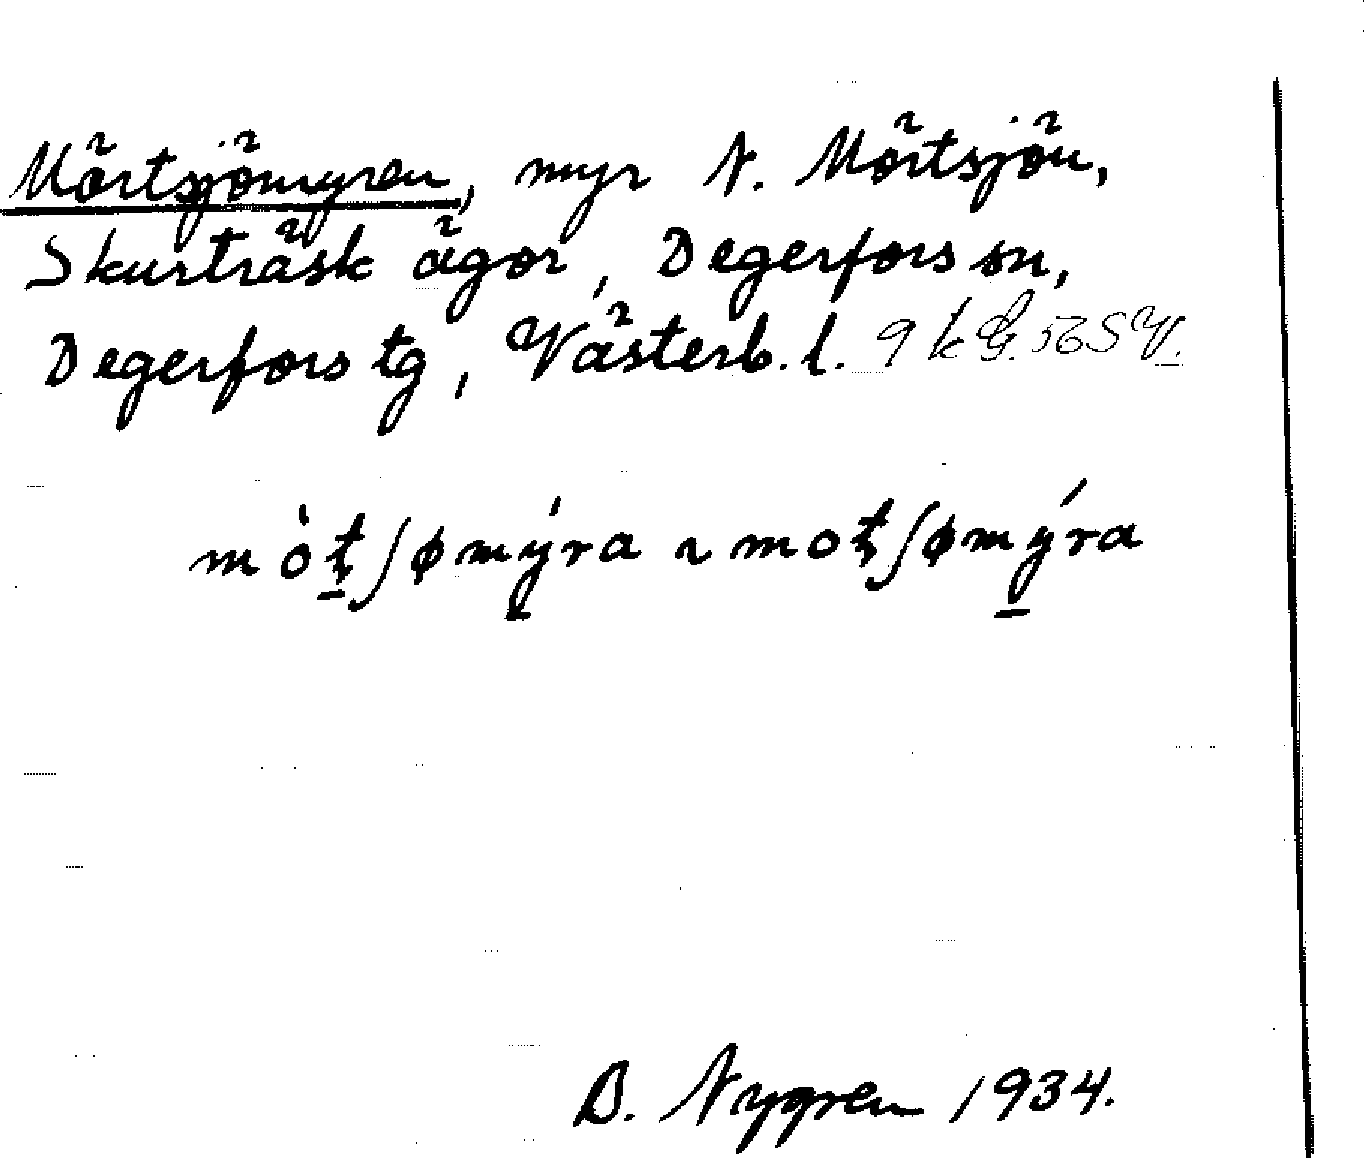 Mörtsjömyren, myr N. Mörtsjön,
Skurträsk ägor, Degerfors sn,
Degerfors tg, Västerb. l. 9 k
mòʈʃømýra ~ moʈʃømýra
B. Nygren 1934.